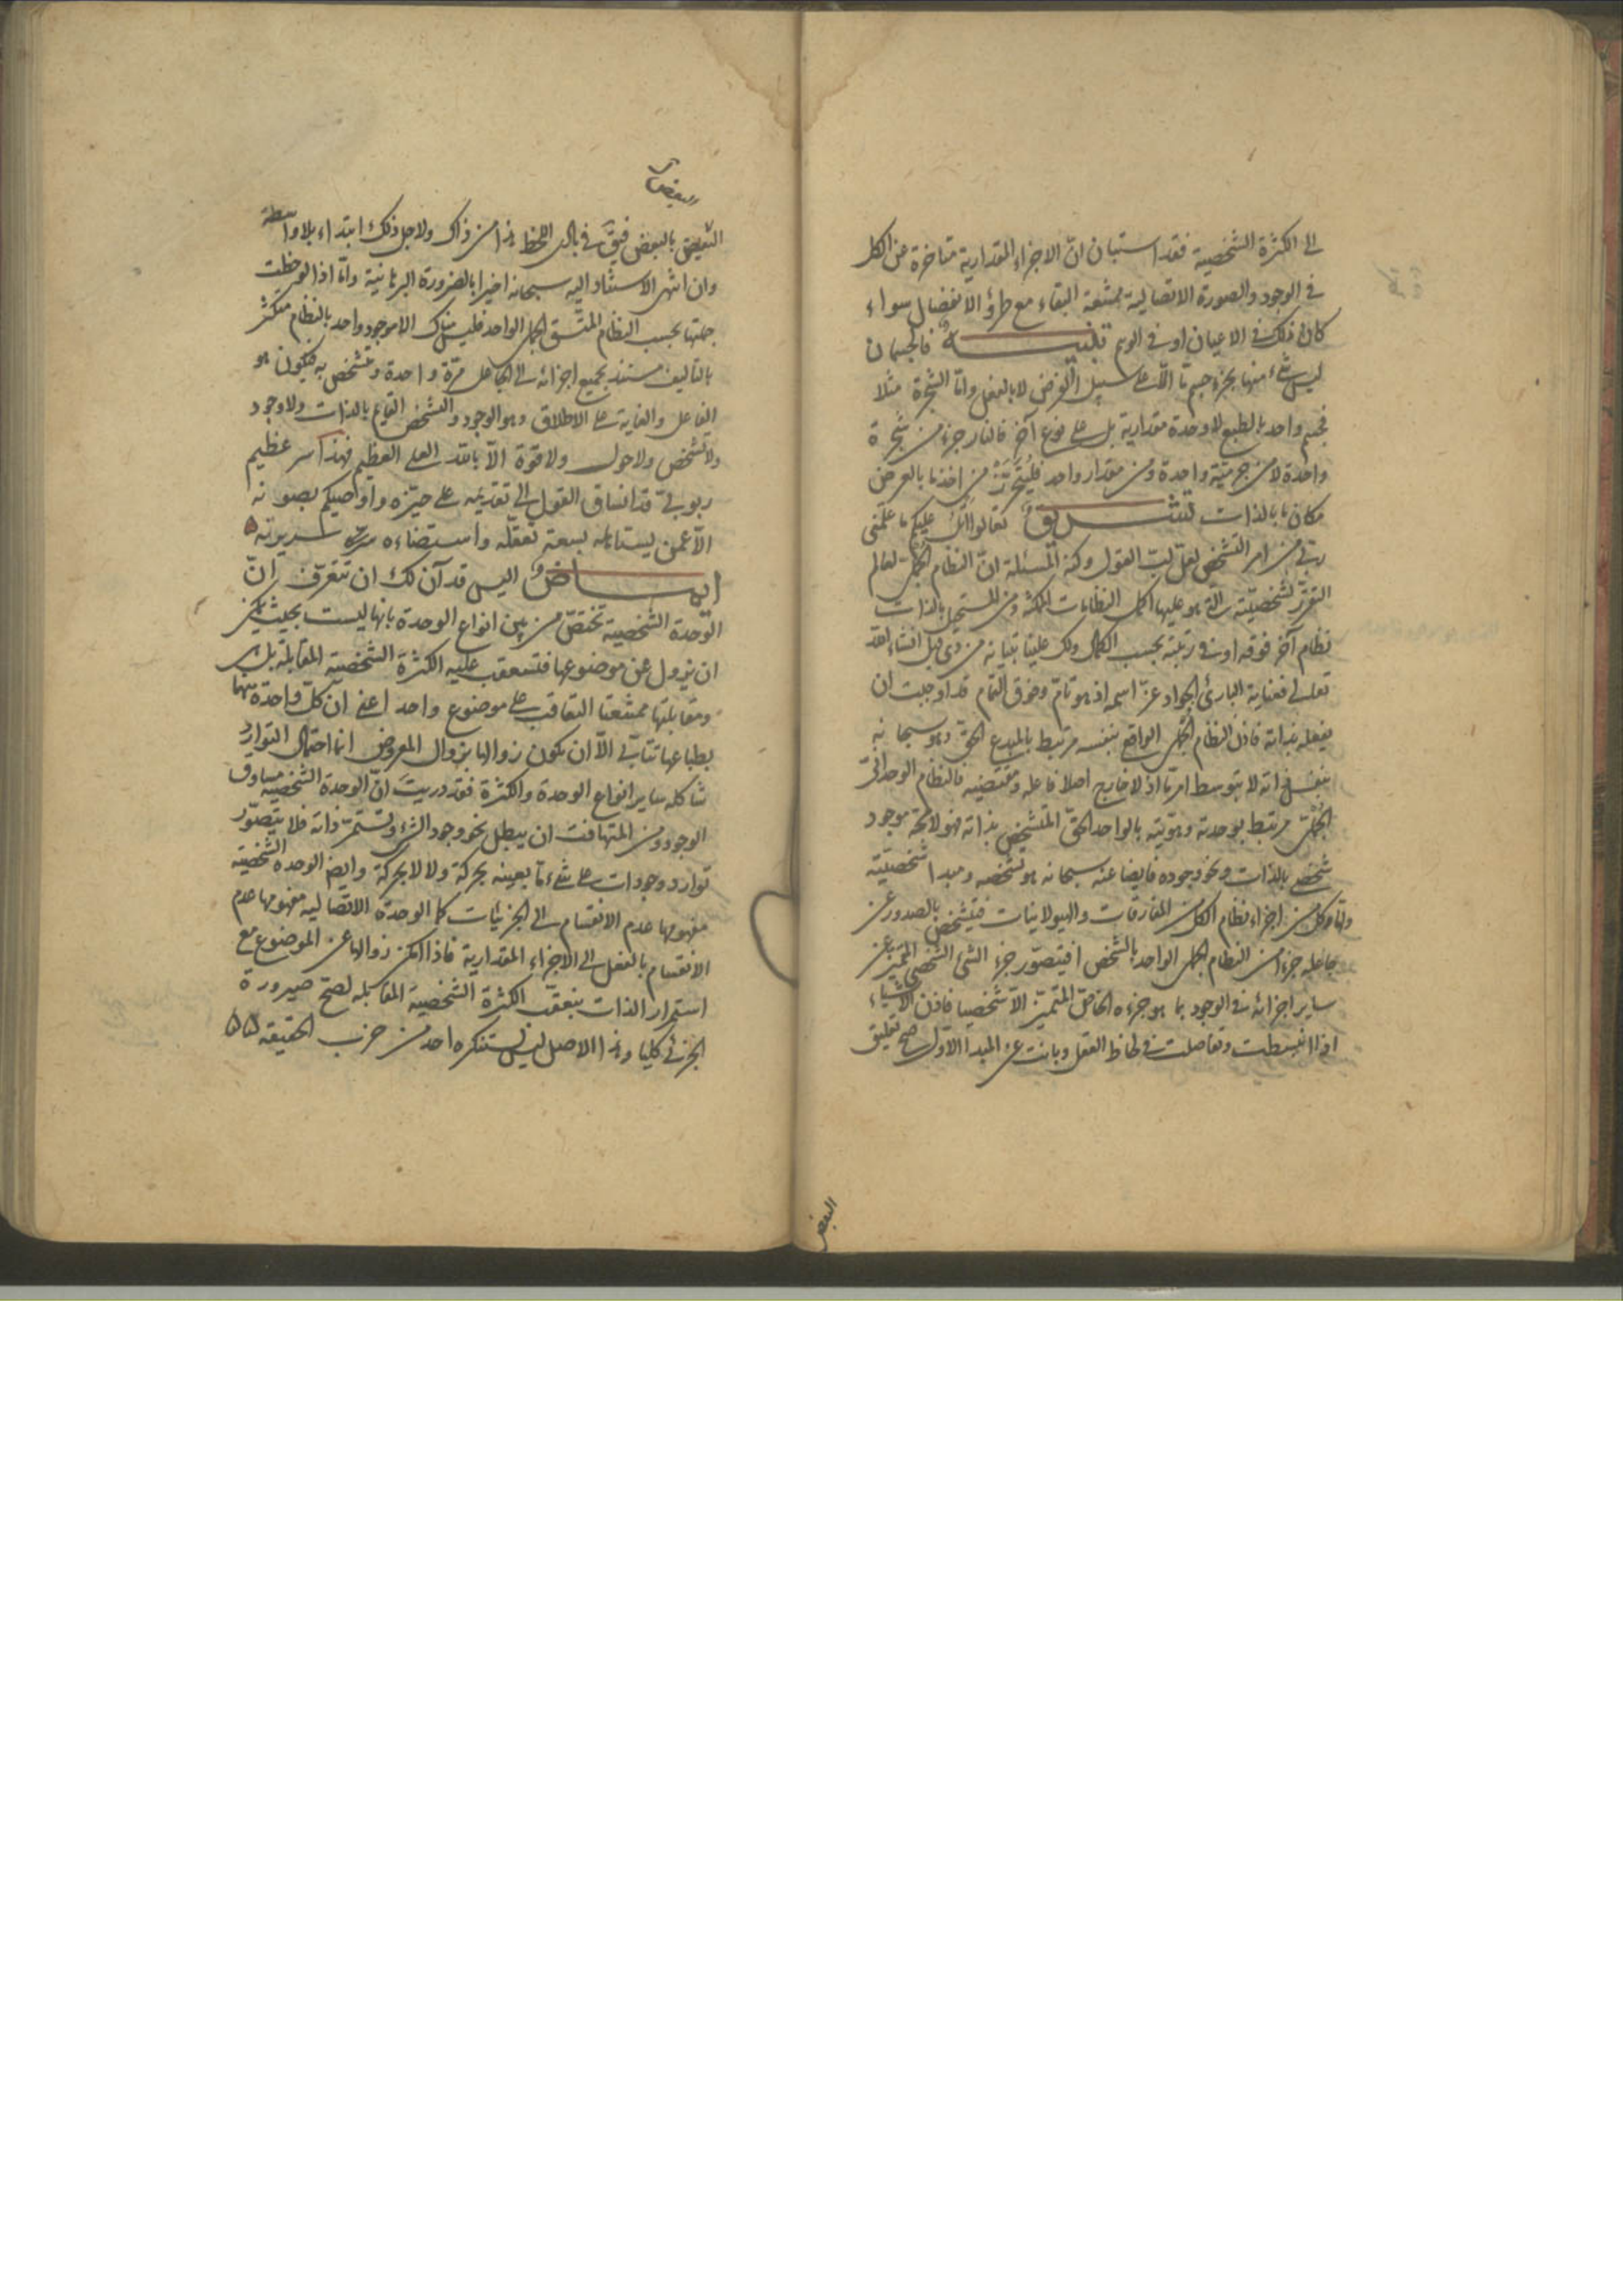 الى الكثرة الشخصية فقد استبان انّ الاجزاء المقدارية متاخرة عن الكل
فى الوجود والصورة الاتصالية ممتنعة البقاء مع طروّ الانفصال سواء
كان ذلك فى الاعيان او فى الوهم تنبيه فالجسمان
ليس شىء منها بجزء جسم ما الا على سبيل الفرض لا بالفعل وامّا الشجرة مثلا
فجسم واحد بالطبع لا وحدة مقدارية بل على نوع آخر فالنار جزء من شجرة
واحدة لا من جرمية واحدة ومن مقدار واحد فليتحرّز من اخذ ما بالعرض
مكان ما بالذات تشريق تعالوا اتل عليكم ما علّمنى
ربّى من امر التشخص لعلّ لبّ القول وكنه المسئلة انّ النظام الجملى لعالم
التقرر لشخصيته التى هو عليها اكمل النظامات الممكنة ومن المستحيل بالذات
نظام آخر فوقه او فى رتبته بحسب الكمال ولك علينا بيانه من ذى قبل انشاء الله
تعالى فعناية البارئ الجواد عزّ اسمه اذ هو تامّ وفوق التمام قد اوجبت ان
يفعله بذاته فاذن النظام الجملى الواقع بنفسه مرتبط بالمبدع الحق وهو سبحانه
بنفس ذاته لا بتوسط امر ما اذ لا خارج اصلا فاعله ومقتضيه فالنظام الوحدانىّ
الجملىّ مرتبط بوحدته وهويته بالواحد الحقّ المتشخص بذاته فهو لا محة موجود
شخصى بالذات ونحو وجوده فايضا عنه سبحانه هو تشخصه ومبدا شخصيّته
وامّا كل من اجزاء نظام الكل من المفارقات والهيولانيات فيتشخص بالصدور عن
جاعله جزءا من النظام الجملى الواحد بالشخص افيتصوّر جزء الشىء الشخصى المتميز عن
ساير اجزائه فى الوجود بما هو جزءه الخاصّ المتميّز الا شخصيا فاذن الاشياء
اذا انبسطت وتفاصلت فى لحاظ العقل وبانت عن المبدا الاول صح تعليق
البعض
البعض
البعض بالبعض فيق فى بادى اللحظ هذا من ذاك ولاجل ذلك ابتداء بلا واسطة
وان انتهى الاستناد اليه سبحانه اخيرا بالضرورة البرهانية وامّا اذا لوحظت
جملتها بحسب النظام المتّسق الجملى الواحد فليس هناك الا موجود واحد بالنظام متكثر
بالتاليف مستند بجميع اجزائه الى الجاعل مرّة واحدة وتشخص به فيكون هو
الفاعل والغاية على الاطلاق وهو الوجود والتشخص القايم بالذات ولا وجود
ولا تشخص ولا حول ولا قوة الا بالله العلى العظيم فهذا سر عظيم
ربوبىّ قد انساق القول الى تقديمه على حيّزه واواصيكم بصونه
الا عمّن يستاهله بسعة تعقّله واستضاءه سرّه
ايماض اليس قد آن لك ان تتعرّف انّ
الوحدة الشخصية تختصّ من بين انواع الوحدة بانها ليست بحيث يمكن
ان يزول عن موضوعها فتتعقب عليه الكثرة الشخصية المقابلة بل هى
ومقابلتها ممتنعتا التعاقب على موضوع واحد اعنى ان كلّ واحدة منهما
بطباعها تتابّى الا ان يكون زوالها بزوال المعروض انما احتمال التوارد
شاكلة ساير انواع الوحدة والكثرة فقد دريت انّ الوحدة الشخصية مساوق
الوجود ومن المتهافت ان يبطل نحو وجود الشىء وتستمرّ ذاته فلا يتصوّر
توارد وجودات على شىء ما بعينه بحركة ولا لا بحركة وايضا الوحدة الشخصية
مفهومها عدم الانقسام الى الجزئيات كما الوحدة الاتصالية مفهومها عدم
الانقسام بالفعل الى الاجزاء المقدارية فاذا امكن زوالها عن الموضوع مع
استمرار الذات بتعقّب الكثرة الشخصية المقابلة لصحّ صيرورة
الجزئى كليا وهذا الاصل ليس يستنكره احد من حزب الحقيقة